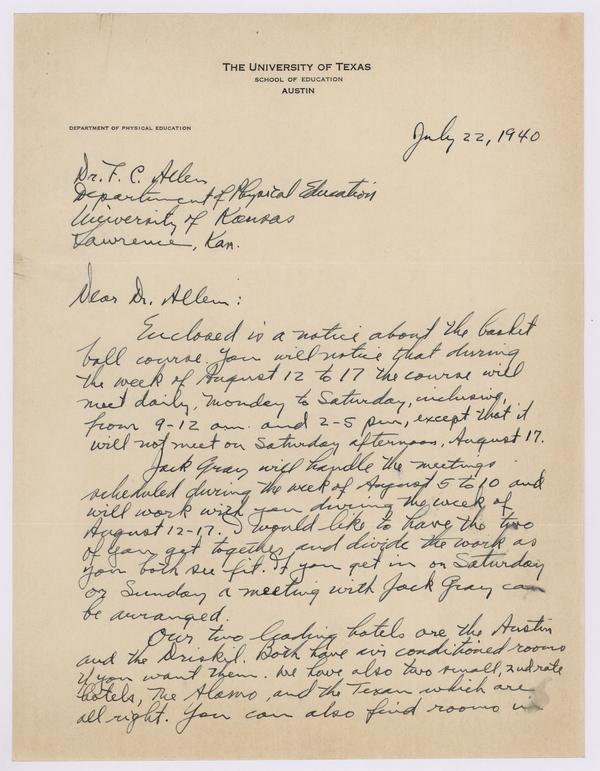 THE UNIVERSITY OF TEXAS
SCHOOL OF EDUCATION
AUSTIN
DEPARTMENT OF PHYSICAL EDUCATION
July 22, 1940
Dr. F. C. Allen
Department of Physical Education
University of Kansas
Lawrence, Kan.
Dear Dr. Allen:
Enclosed is a notice about the basket
ball course. You will notice that during
the week of August 12 to 17 the course will
meet daily, Monday to Saturday, inclusive,
from 9-12 am. and 2-5 pm, except that it
will not meet on Saturday afternoon, August 17.
Jack Gray will handle the meetings
scheduled during the week of August 5 to 10 and
will work with you during the week of
August 12-17. I would like to have the two
of you get together and divide the work as
you both see fit. If you get in on Saturday
or Sunday a meeting with Jack Gray can
be arranged.
Our two leading hotels are the Austin
and the Driskil. Both have air conditioned rooms
if you want them. We have also two small, 2nd rate
hotels, The Alamo, and the Texan which are
all right. You can also find rooms in